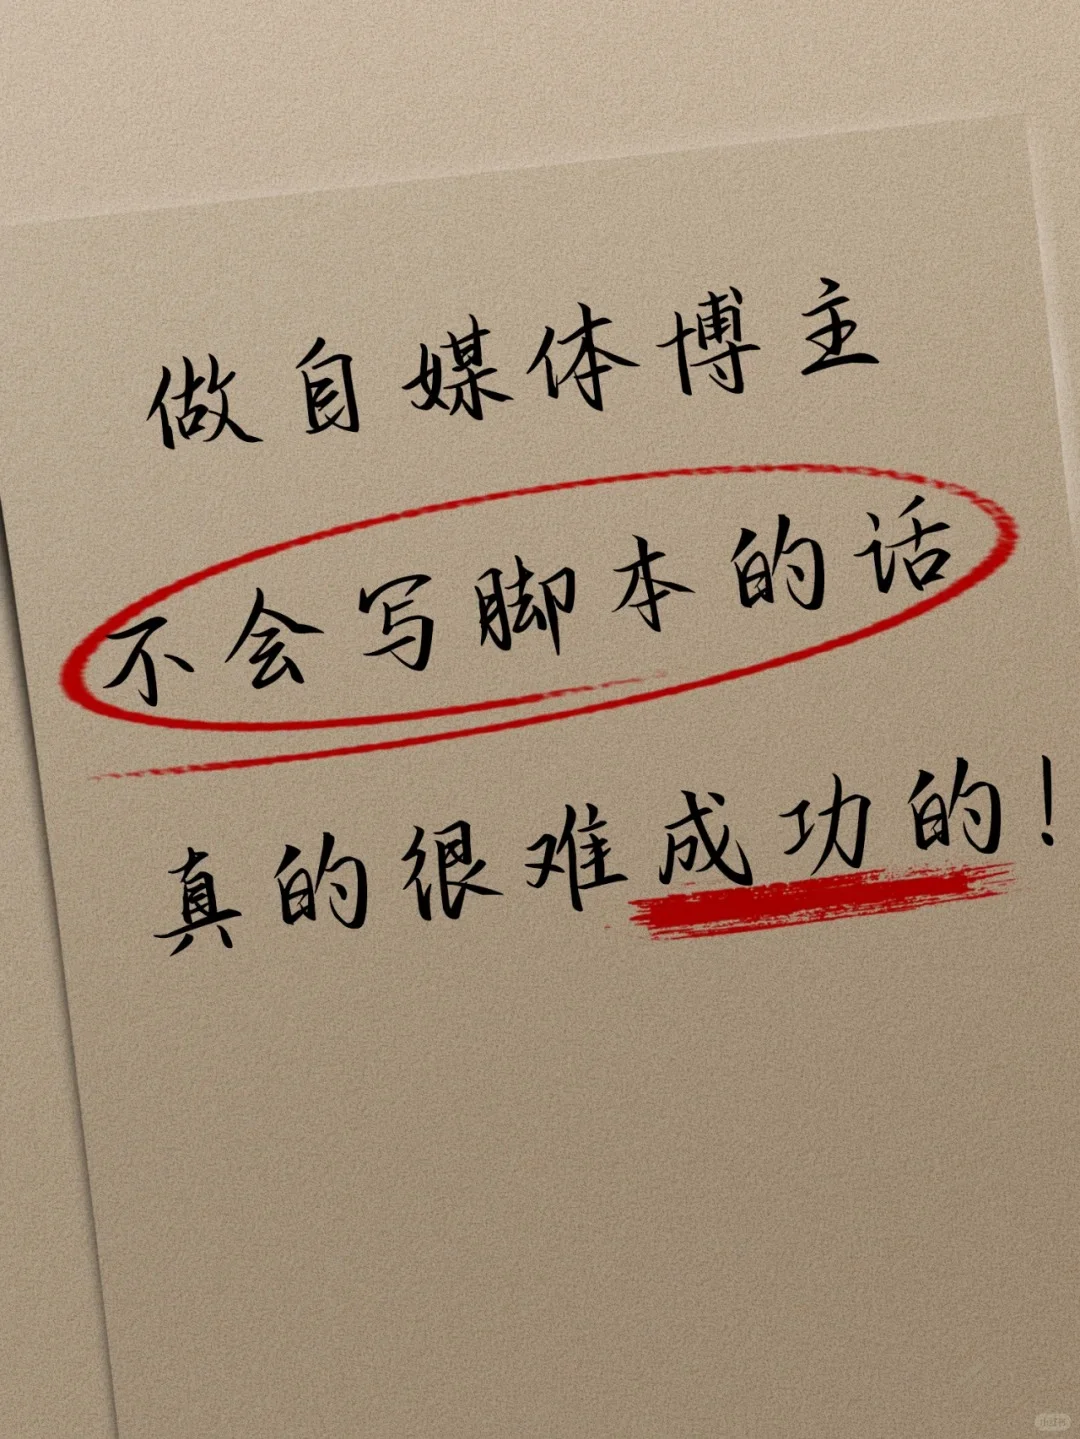 做自媒体博主
不会写脚本的话
真的很难成功的！
小红书